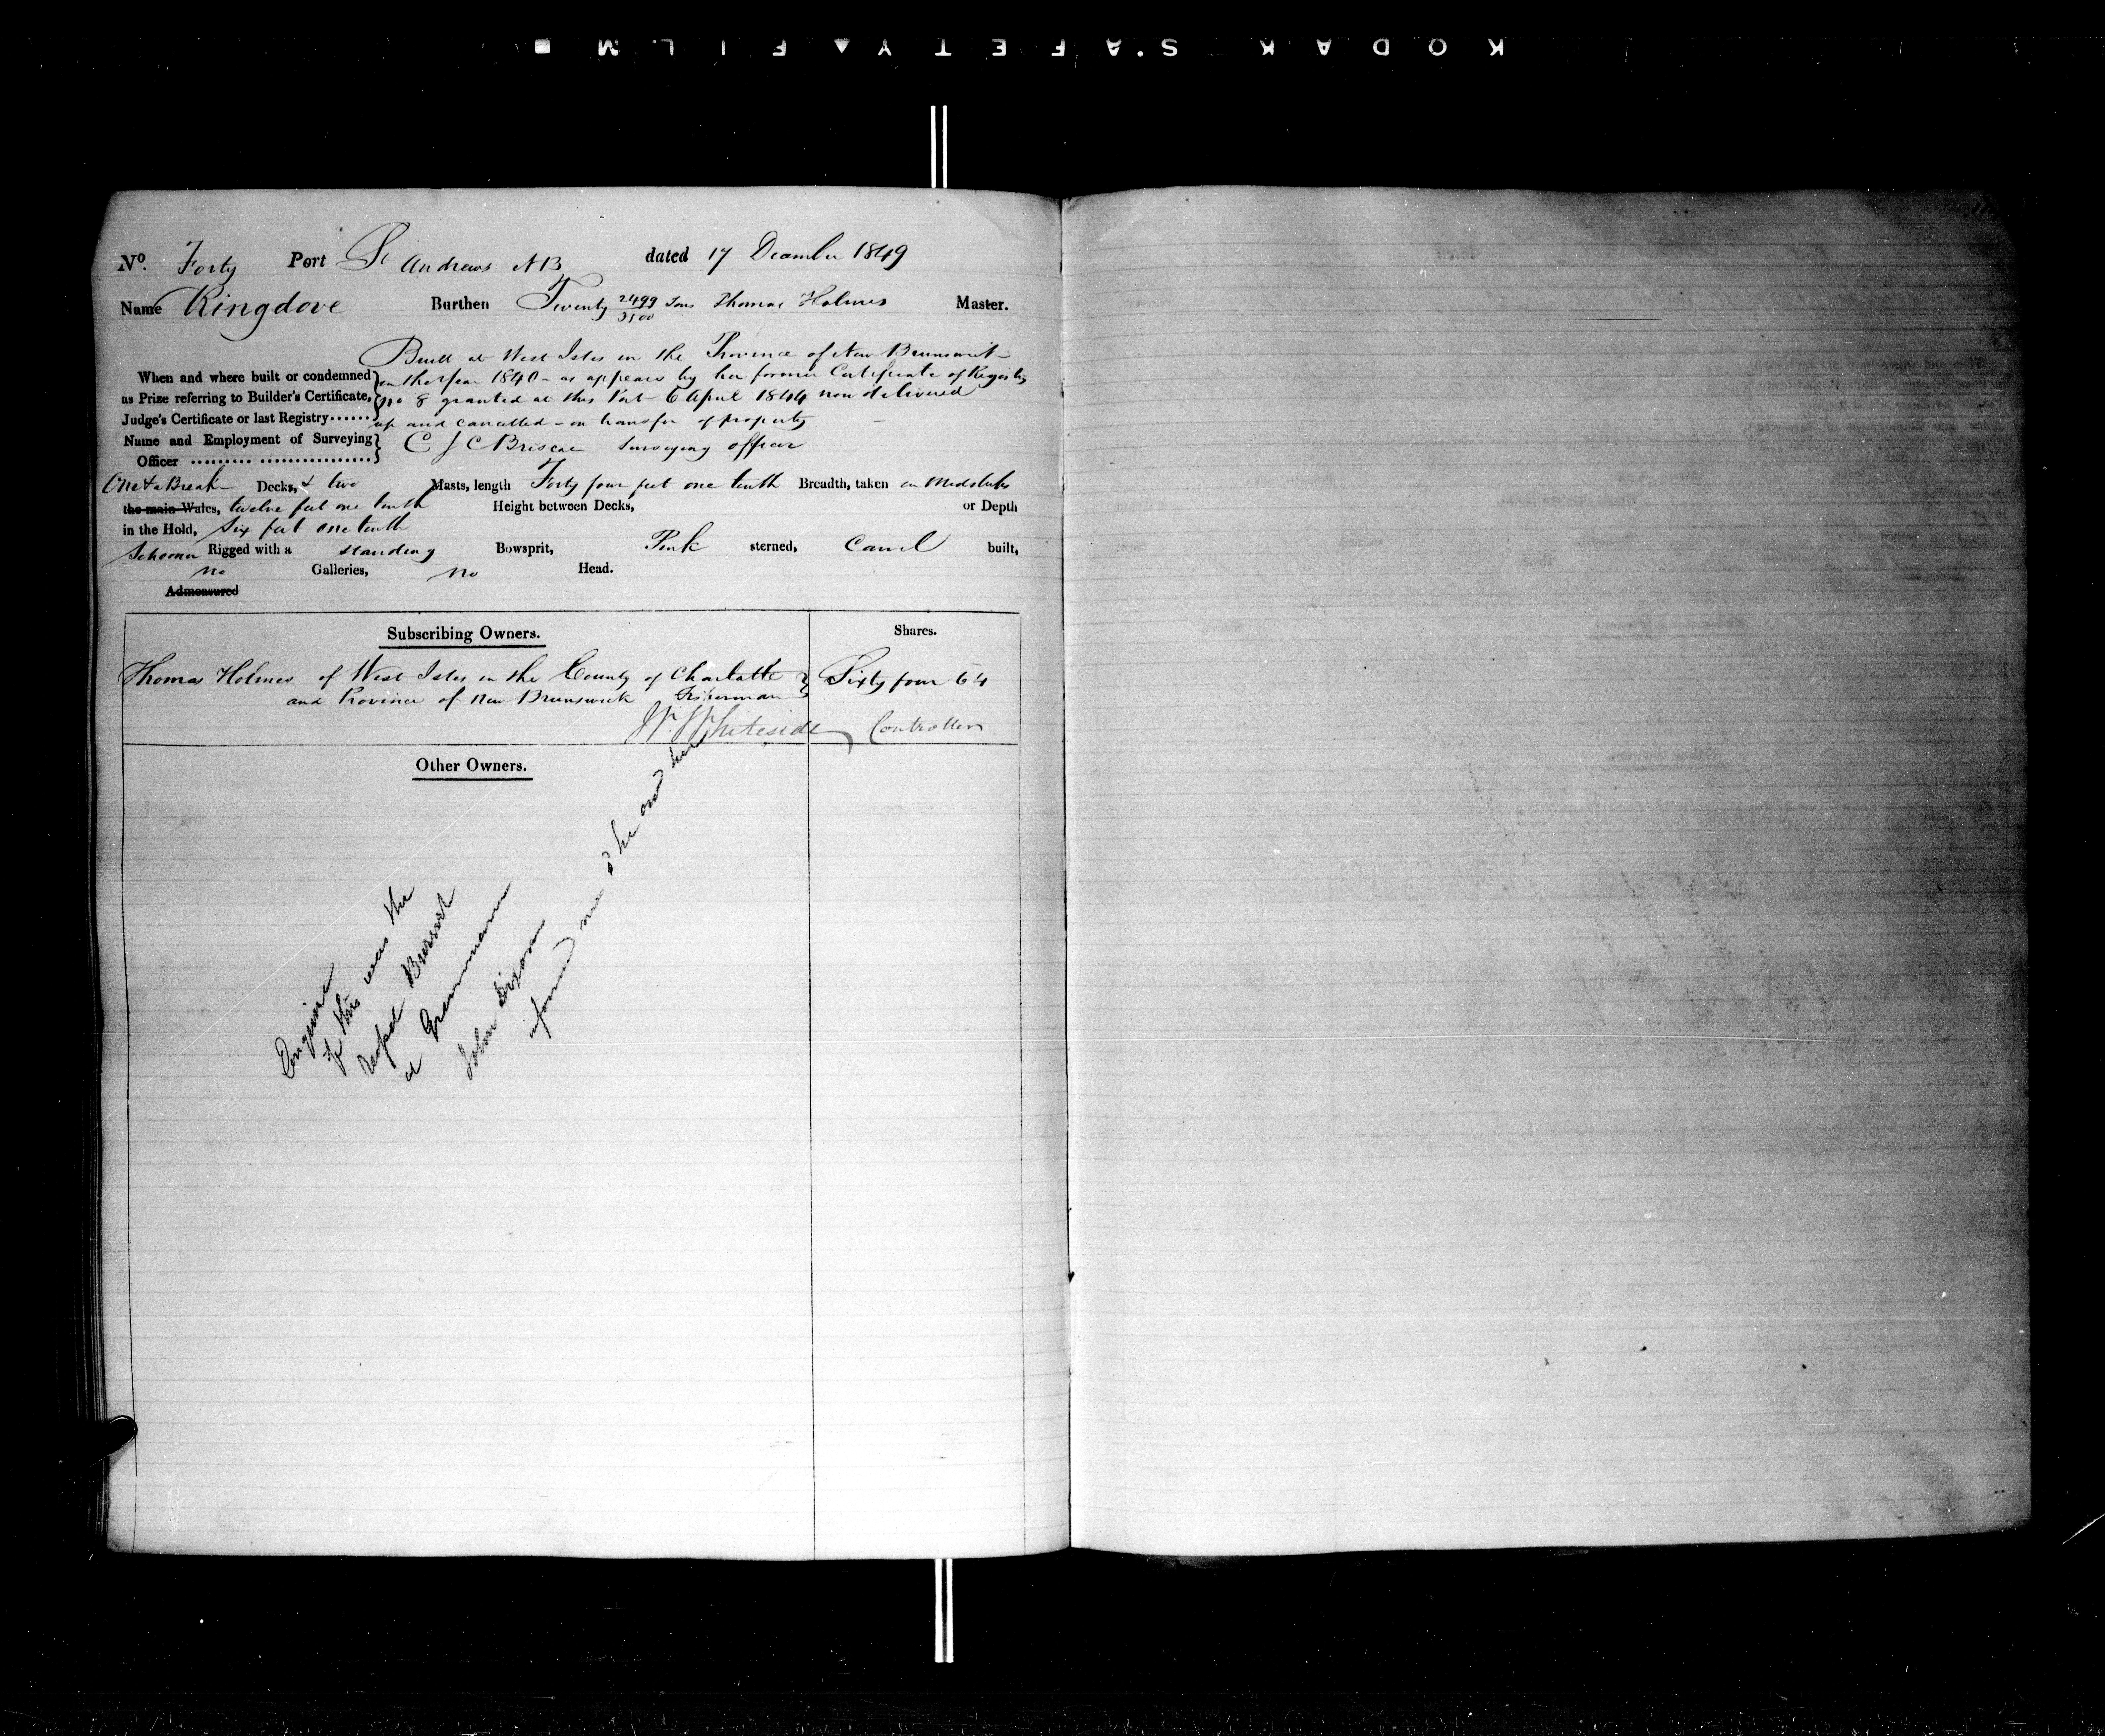 KODAK SAFETY FILM
No. Forty Port St Andrews NB dated 17 December 1849
Name Ringdove Burthen Twenty 2499/3500 Tons Thomas Holmes Master.
Built at West Isles in the Province of New Brunswick
When and where built or condemned in the year 1840 - as appears by her former Certificate of Registry
as Prize referring to Builder's Certificate, No 8 granted at this Port 6 April 1844 now delivered
Judge's Certificate or last Registry...... up and cancelled - on transfer of property
Name and Employment of Surveying C J C Briscoe Surveying officer
Officer
One & a Break Decks, & two Masts, length Forty four feet one tenth Breadth, taken in Midships
the main Wales, twelve feet one tenth Height between Decks, or Depth
in the Hold, Six feet one tenth
Schooner Rigged with a standing Bowsprit, Pink sterned, Carvel built,
no Galleries, no Head.
Admeasured
Subscribing Owners. Shares.
Thomas Holmes of West Isles in the County of Charlotte } Sixty four 64
and Province of New Brunswick Fisherman
W. Whiteside Controller
Other Owners.
Enquire
if this was the
Vessel
at
John Dixon
informed me & he owd her